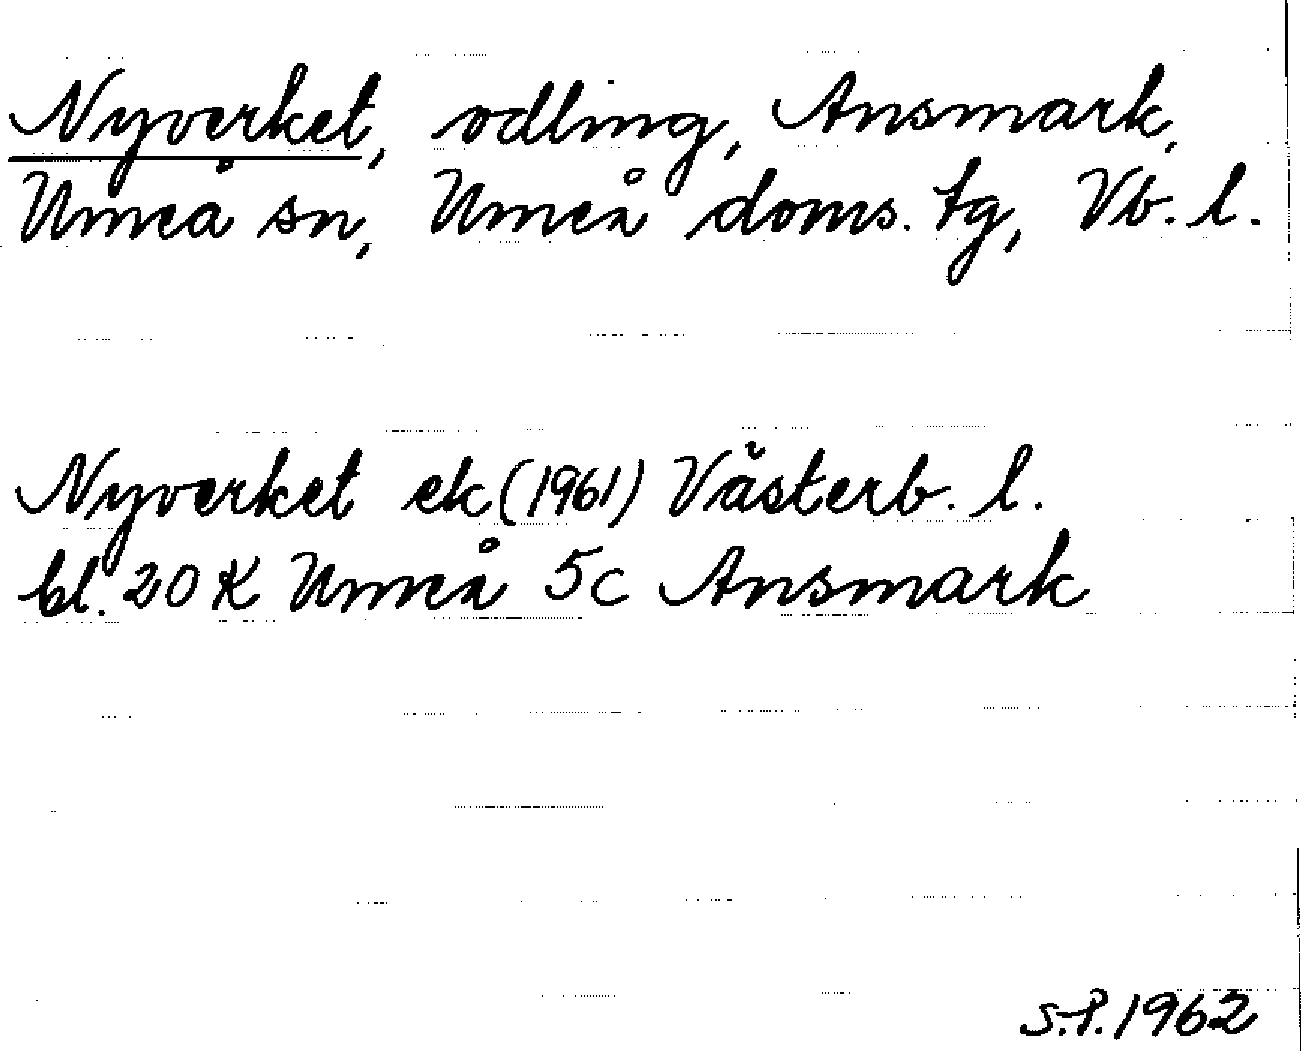 Nyverket, odling, Ansmark,
Umeå sn, Umeå doms. tg, Vb. l.
Nyverket ek (1961) Västerb. l.
bl. 20 K Umeå 5c Ansmark
S.P. 1962